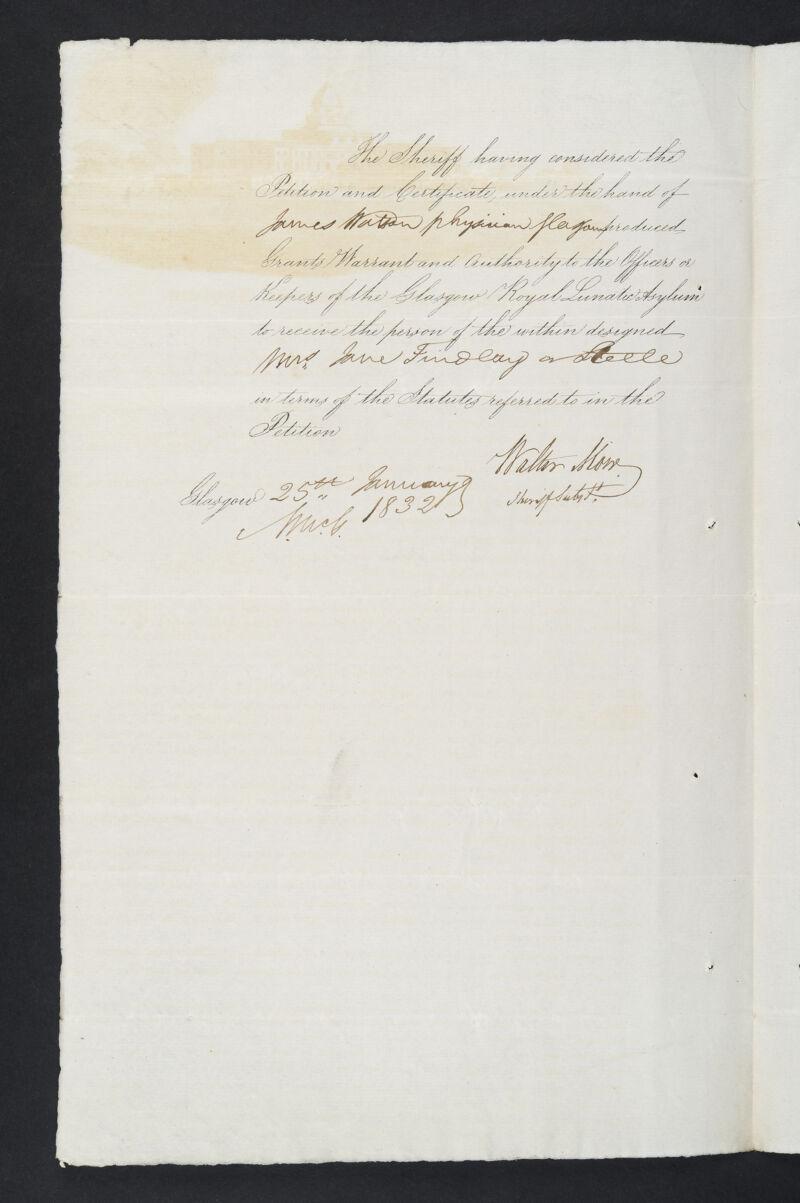 The Sheriff having considered the
Petition and Certificate, under the hand of
James Watson physician Glasgow produced
Grants Warrant and Authority to the Officers or
Keepers of the Glasgow Royal Lunatic Asylum
to receive the person of the within designed
Mrs. Jane Findlay or Steele
in terms of the Statutes referred to in the
Petition
Walter Moir
Sheriff Subst.
Glasgow 25th January
1832